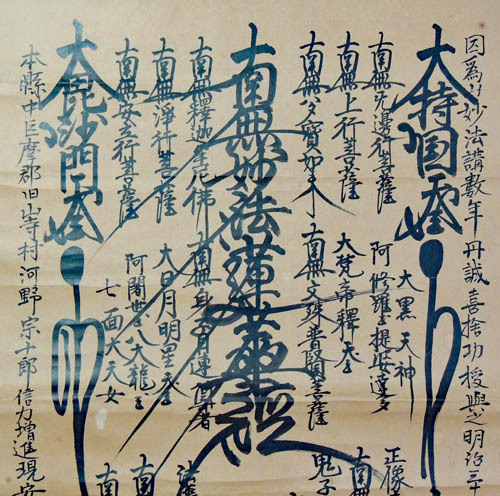 因爲妙法講數年丹誠喜捨功授與之明治三十
大持国天王
南無无邊行菩薩
南無上行菩薩
南無多寳如来
大黒天神
阿修羅王提婆達多
大梵帝釋天王
南無文殊普賢菩薩
正像
鬼子
南無妙法蓮華經
南無釋迦牟尼佛
南無淨行菩薩
南無安立行菩薩
南無身子目連尊者
大日月明星天王
阿闍世王八大龍王
七面大天女
南
南
大毘沙門天王
本縣中巨摩郡旧山寺村河野宗十郎信力増進現安